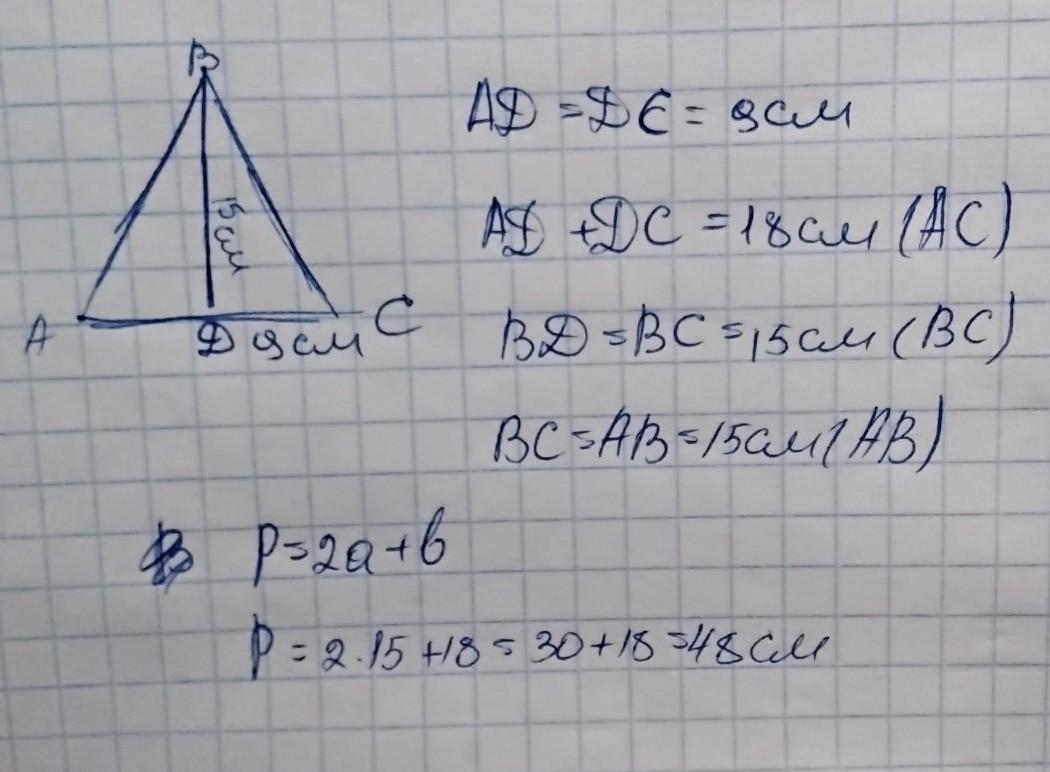 B
15 см
A
D 9см C
AD = DC = 9см
AD + DC = 18см (AC)
BD = BC = 15см (BC)
BC = AB = 15см (AB)
P = 2a + b
P = 2 · 15 + 18 = 30 + 18 = 48см